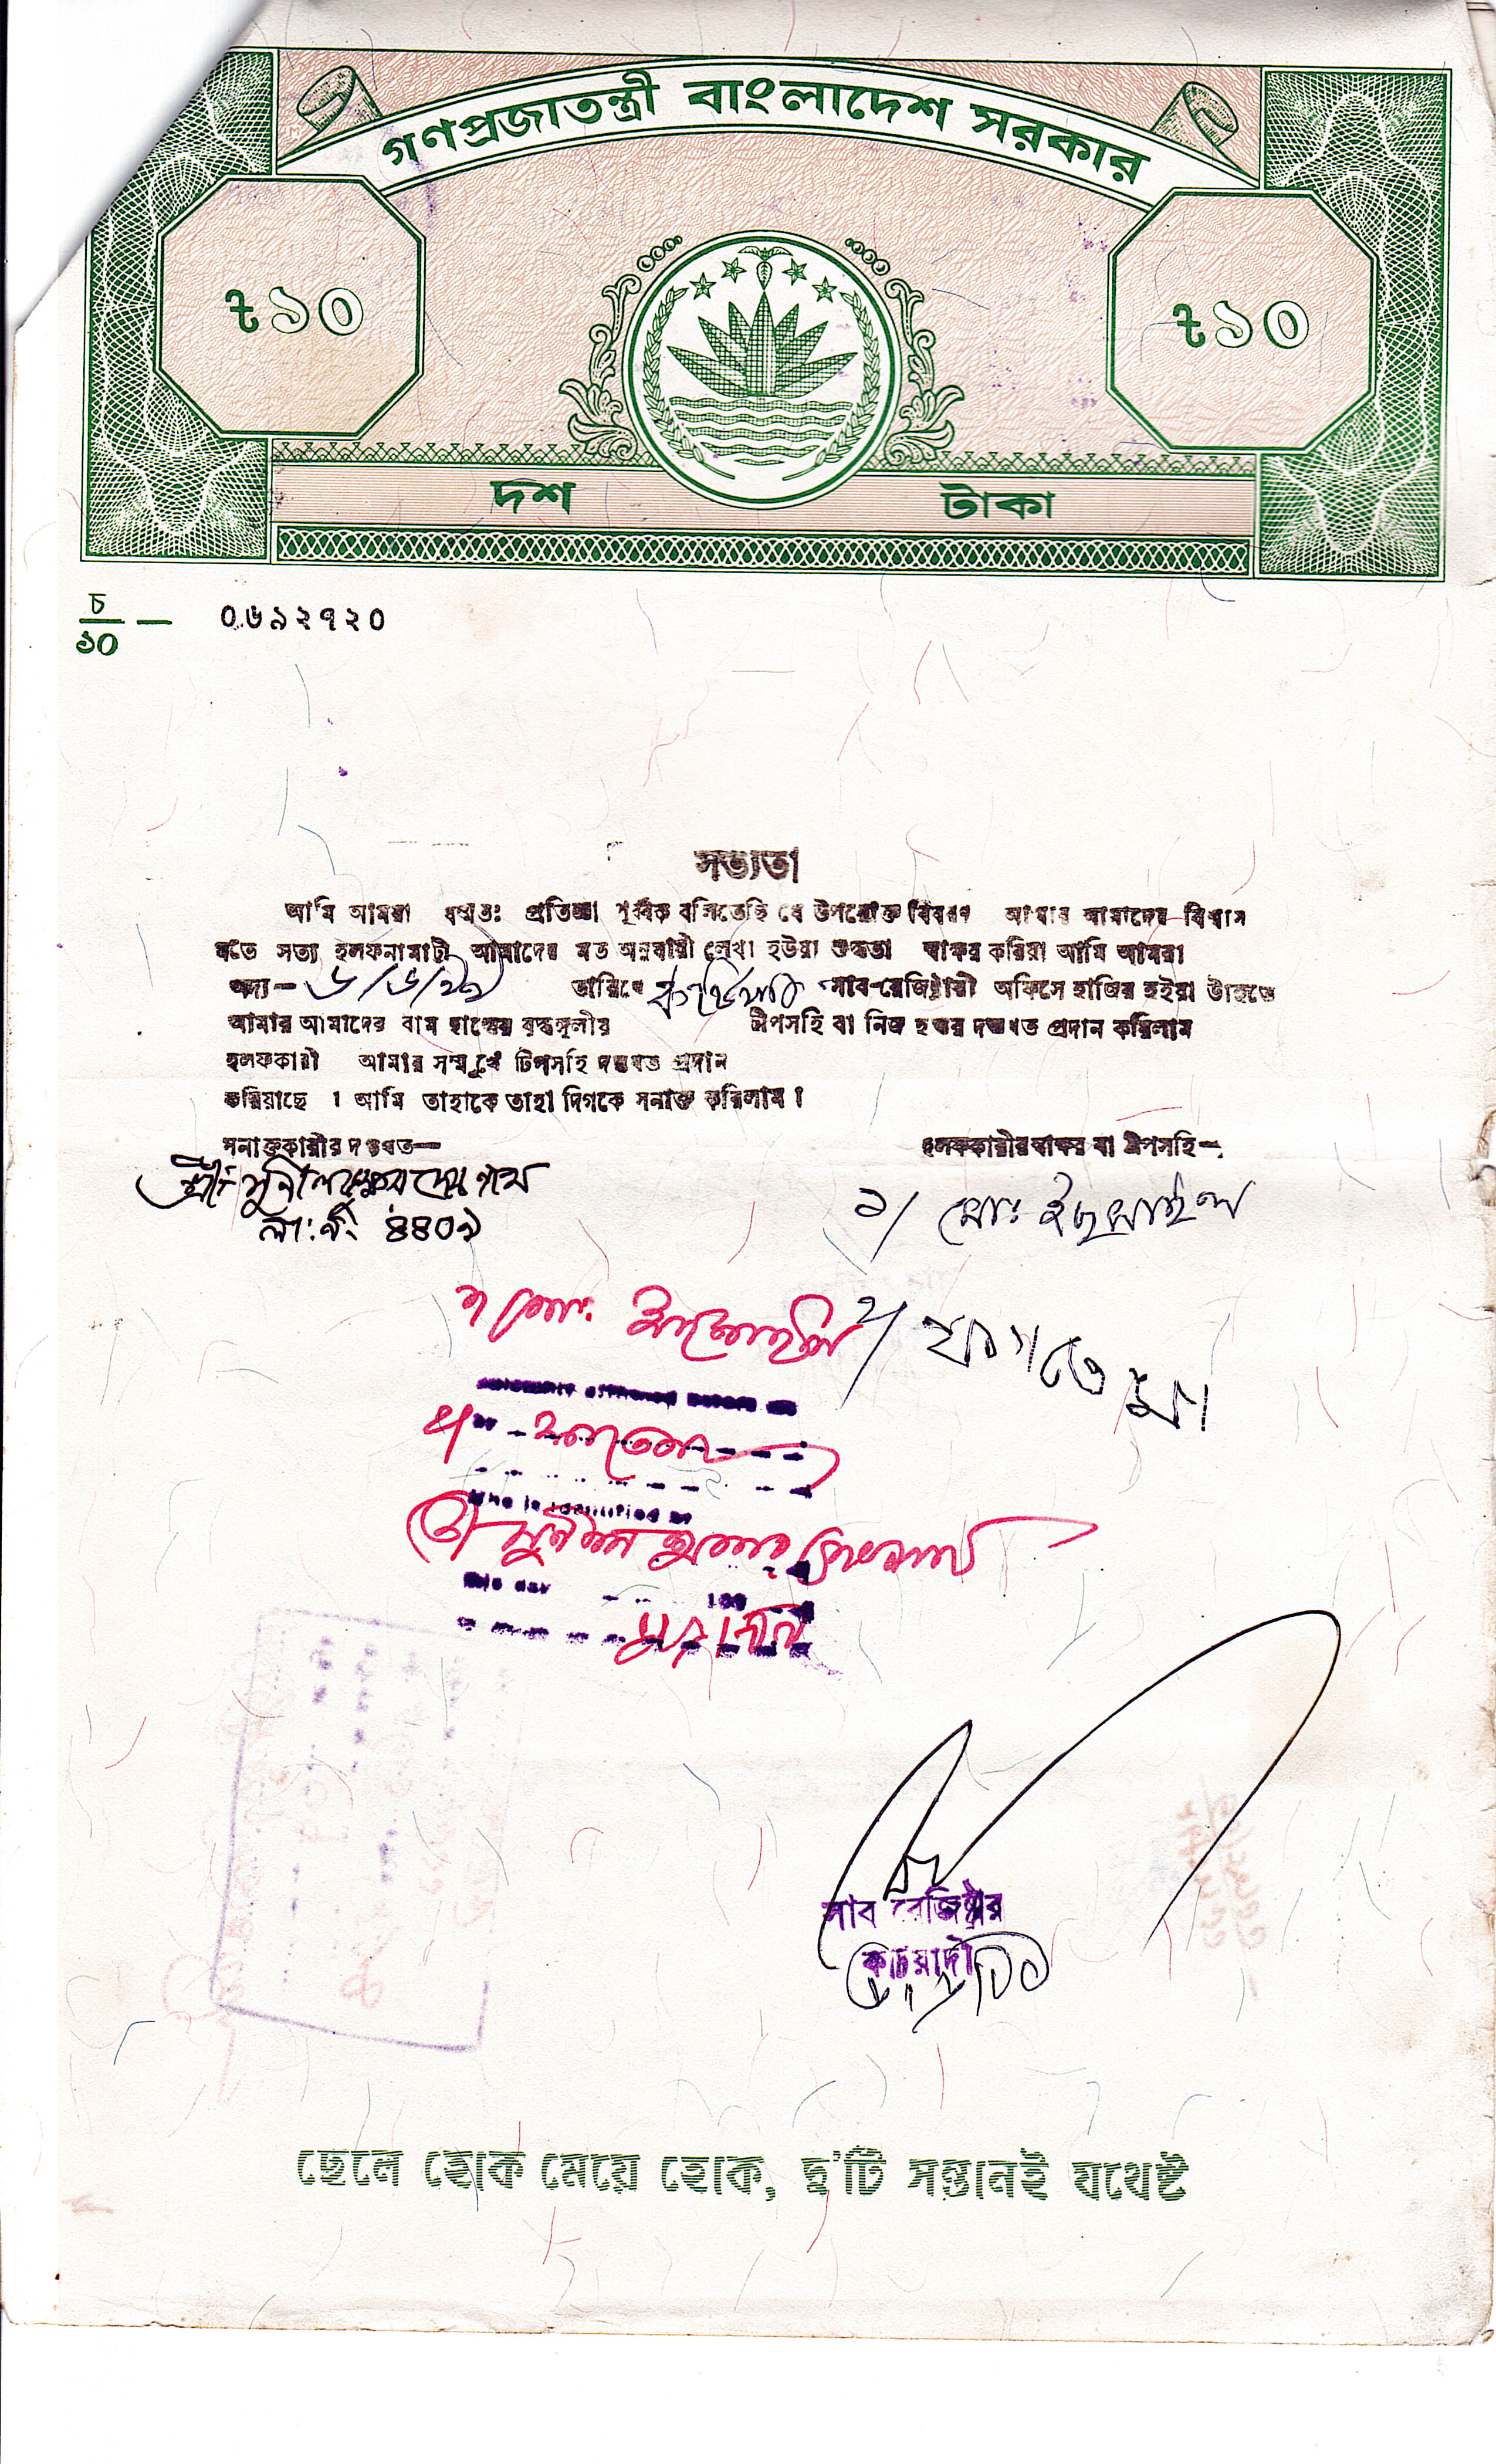 গণপ্রজাতন্ত্রী বাংলাদেশ সরকার
৳১০
৳১০
দশ টাকা
চ
১০ — ০৬৯২৭২০
সত্যতা
আমি আমরা ধর্মতঃ প্রতিজ্ঞা পূর্ব্বক বলিতেছি যে উপরোক্ত বিবরণ আমার আমাদের বিশ্বাস
মতে সত্য হলফনামাটী আমাদের মত অনুযায়ী লেখা হউয়া শুদ্ধতা স্বাক্ষর করিয়া আমি আমরা
অদ্য— তারিখে সাব-রেজিষ্ট্রারী অফিসে হাজির হইয়া উহাতে
আমার আমাদের বাম হাস্তের বৃদ্ধাঙ্গুলীর টীপসহি বা নিজ হস্তর দস্তখত প্রদান করিলাম
হলফকারী আমার সম্মুখে টিপসহি দস্তখত প্রদান
করিয়াছে । আমি তাহাকে তাহা দিগকে সনাক্ত করিলাম ।
সনাক্তকারীর দস্তখত—
হলফকারীর স্বাক্ষর বা টীপসহি—
শ্রী সুনীল কুমার দেব নাথ
লা: নং ৪৪০৯
১/ মোঃ ইছমাইল
১/ মোঃ
২/ ফাতেমা
Who is identified by
সুনীল কুমার দেবনাথ
This day 199
সাব রেজিষ্ট্রার
কটিয়াদী
ছেলে হোক মেয়ে হোক, দু'টি সন্তানই যথেষ্ট